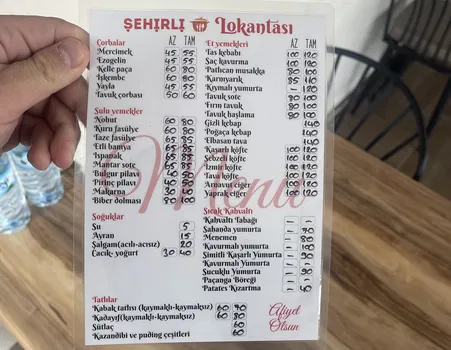 ŞEHİRLİ Lokantası
Çorbalar AZ TAM
Mercimek 45 55
Ezogelin 45 55
Kelle paça 60 80
İşkembe 60 80
Yayla 45 55
Tavuk çorbası 50 60
Sulu yemekler
Nohut 60 80
Kuru fasülye 60 80
Taze fasülye 65 85
Etli bamya 65 85
Ispanak 65 85
Mantar sote 65 85
Bulgur pilavı 40 50
Pirinç pilav 40 50
Makarna 30 40
Biber dolması 80 100
Soğuklar
Su 5
Ayran 15
Şalgam(acılı-acısız) 20
Cacık- yoğurt 30 40
Et yemekleri AZ TAM
Tas kebabı 100 120
Saç kavurma 100 120
Patlıcan musakka 80 100
Karnıyarık 85 110
Kıymalı yumurta - 120
Tavuk sote 80 100
Fırın tavuk 80 100
Tavuk haşlama 80 100
Gizli kebap 140
Poğaça kebap
Elbasan tava 140
Kaşarlı köfte 100 120
Sebzeli köfte 100 120
İzmir köfte 100 120
Tava köfte 100 120
Arnavut ciğer 100 120
Yaprak ciğer 100 120
Sıcak Kahvaltı
Kahvaltı Tabağı - -
Sahanda yumurta - 70
Menemen - 80
Kavurmalı yumurta - 100
Simitli Kaşarlı Yumurta - 90
Kavurmalı Yumurta - 90
Sucuklu Yumurta - 90
Paçanga Böreği - -
Patates Kızartma - 60
Menu
Tatlılar
Kabak tatlısı (kaymaklı-kaymaksız) 60 70
Kadayıf(kaymaklı-kaymaksız) 60 80
Sütlaç 60
Kazandibi ve puding çeşitleri 60
Afiyet
Olsun